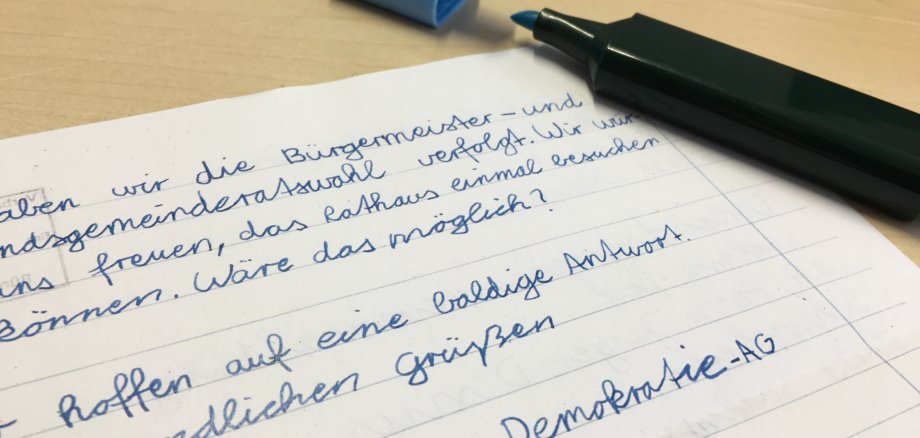 aben wir die Bürgermeister- und
ndsgemeinderatswahl verfolgt. Wir wür-
uns freuen, das Rathaus einmal besuchen
können. Wäre das möglich?
hoffen auf eine baldige Antwort.
ndlichen Grüßen
Demokratie-AG